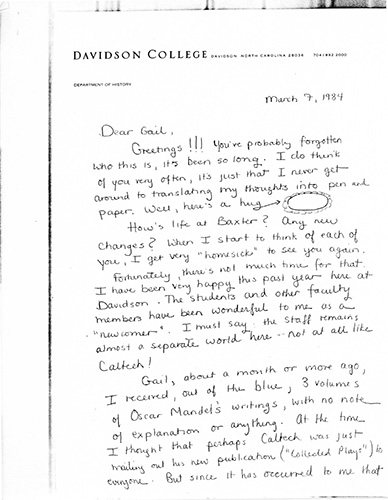 DAVIDSON COLLEGE DAVIDSON, NORTH CAROLINA 28036 704/892-2000
DEPARTMENT OF HISTORY
March 7, 1984
Dear Gail,
Greetings!!! You've probably forgotten
who this is, it's been so long. I do think
of you very often, it's just that I never get
around to translating my thoughts into pen and
paper. Well, here's a hug →
How's life at Baxter? Any new
changes? When I start to think of each of
you, I get very "homesick" to see you again.
Fortunately, there's not much time for that.
I have been very happy this past year here at
Davidson. The students and other faculty
members have been wonderful to me as a
"newcomer". I must say the staff remains
almost a separate world here -- not at all like
Caltech!
Gail, about a month or more ago,
I received, out of the blue, 3 volumes
of Oscar Mandel's writings, with no note
of explanation or anything. At the time
I thought that perhaps Caltech was just
mailing out his new publication ("Collected Plays") to
everyone. But since it has occurred to me that